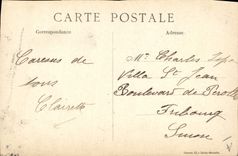 CARTE POSTALE
Correspondance
Adresse
Caresses de
tous
Claire
Mr Charles
Villa St Jean
Boulevard de Perolles
Fribourg
Suisse